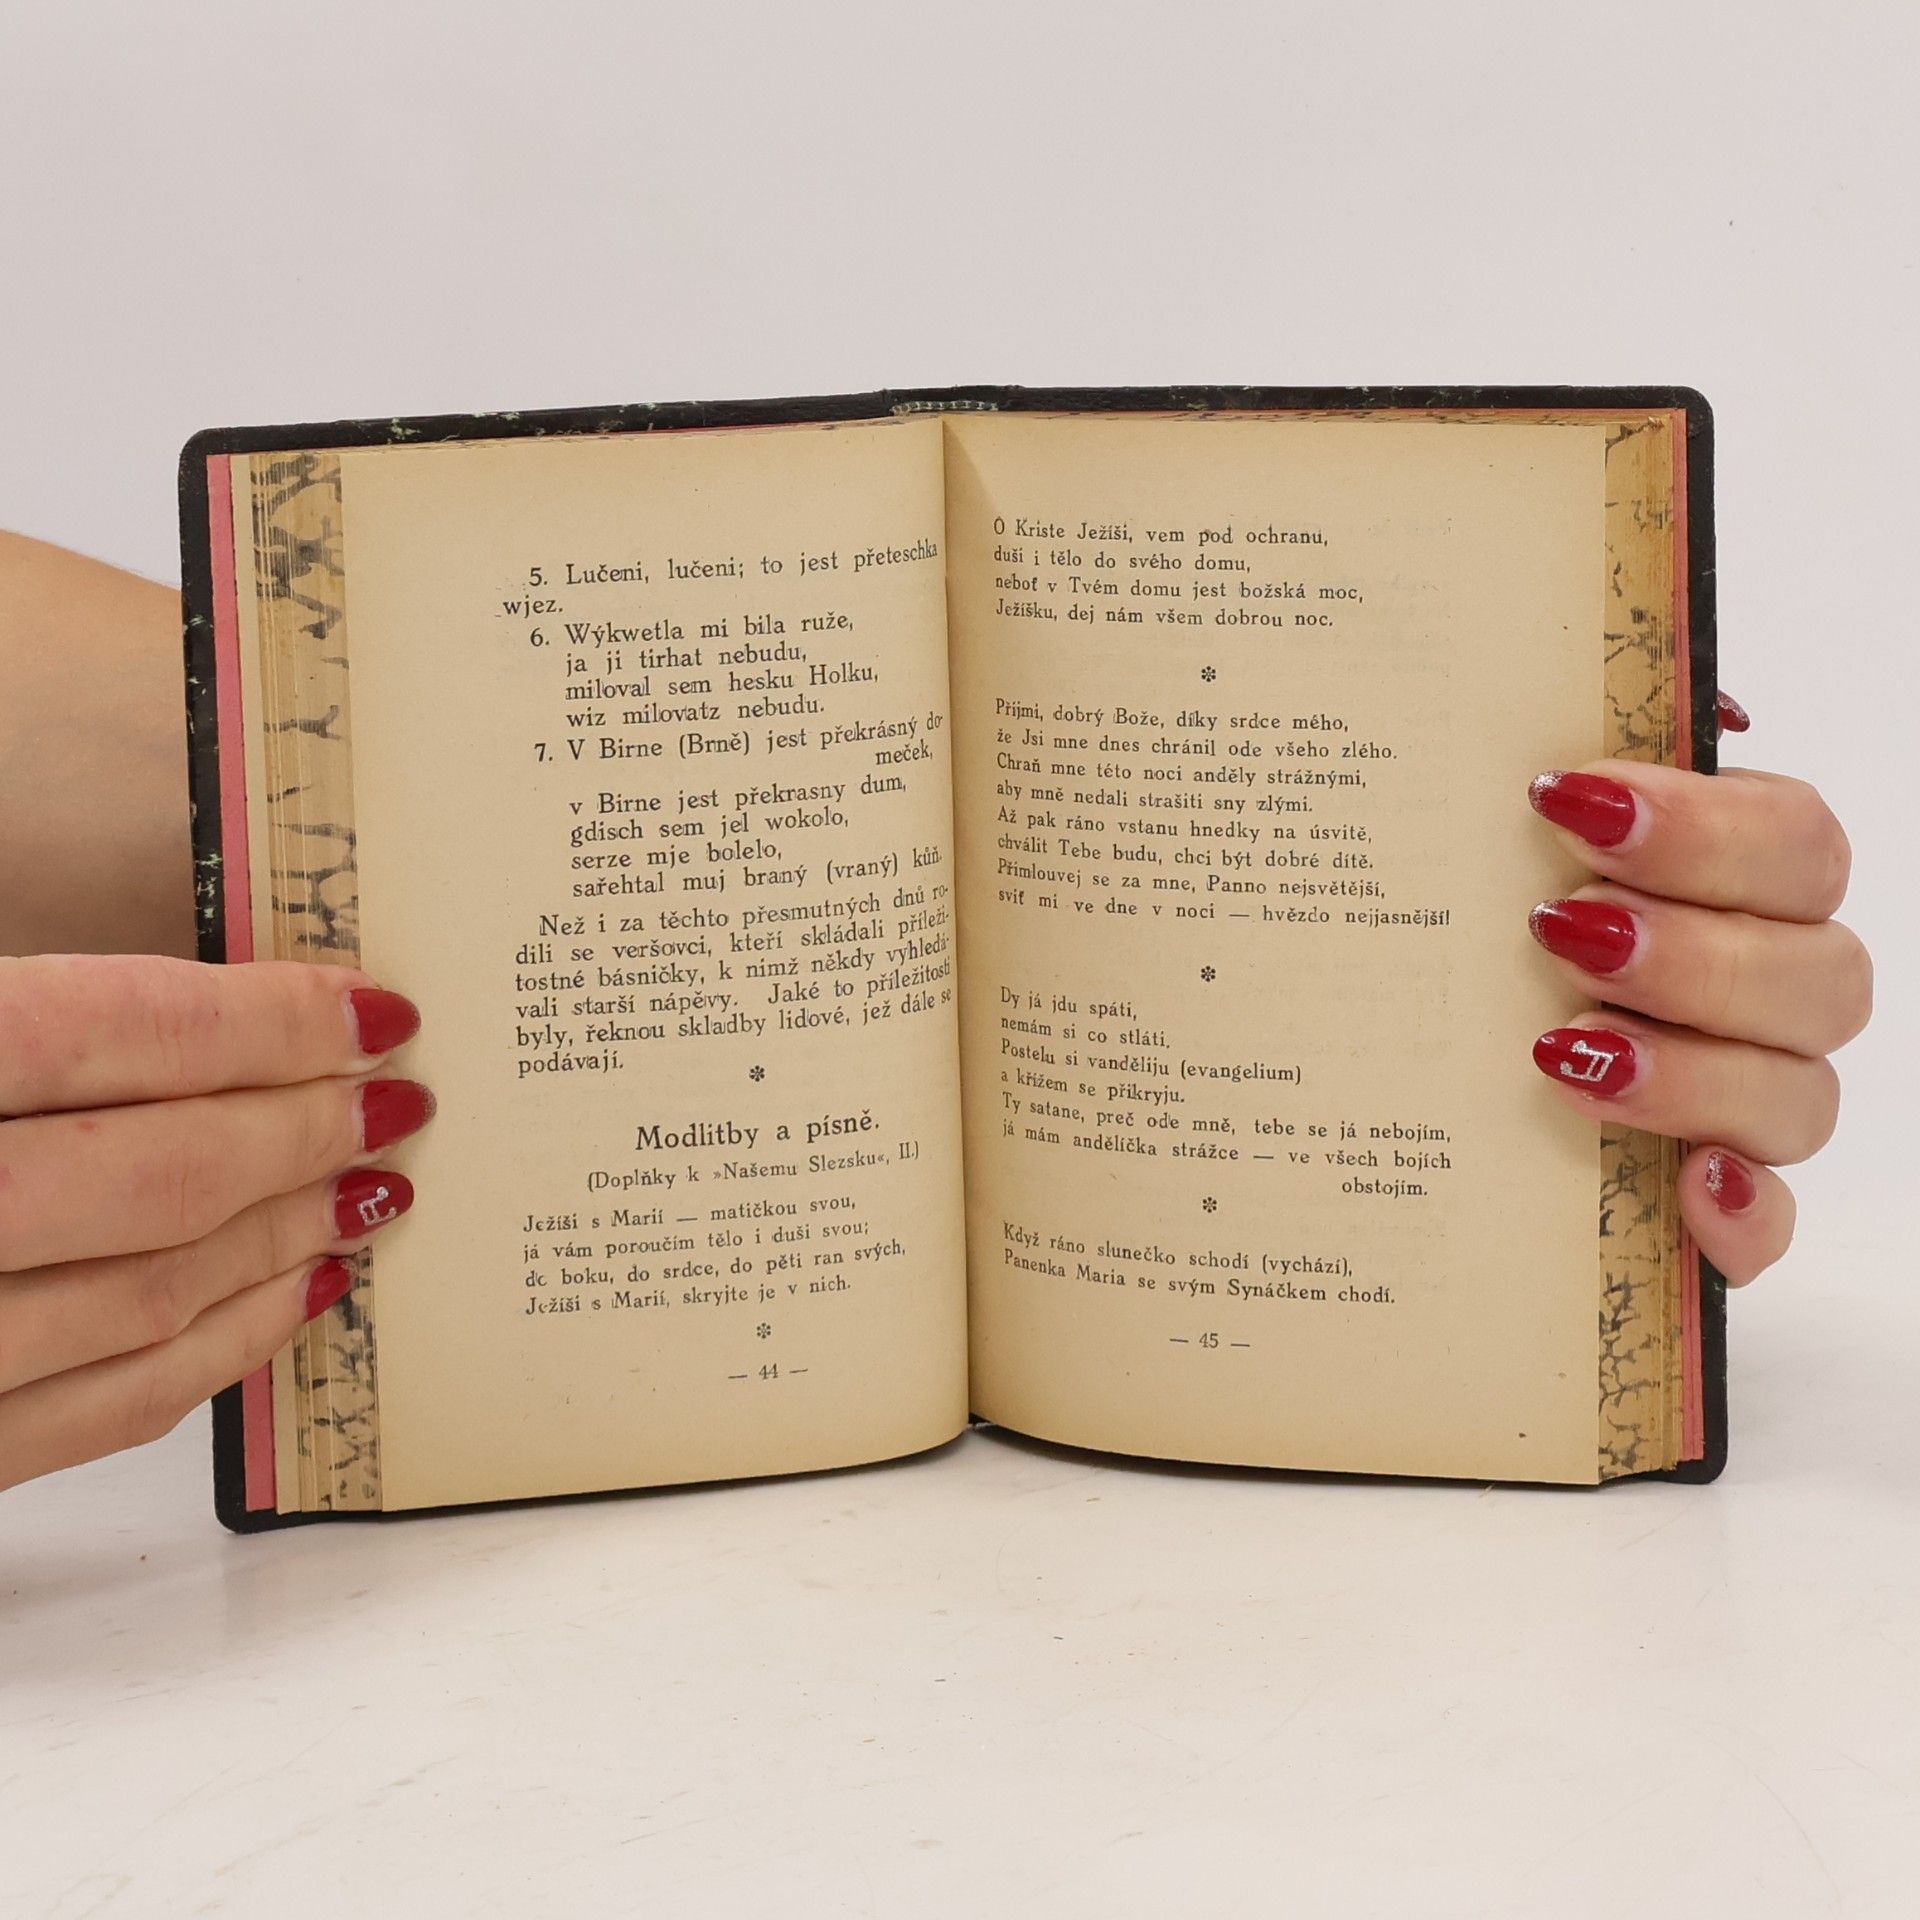 5. Lučeni, lučeni; to jest přeteschka
wjez.
6. Wýkwetla mi bila ruže,
ja ji tirhat nebudu,
miloval sem hesku Holku,
wiz milovatz nebudu.
7. V Birne (Brně) jest překrásný do-
meček,
v Birne jest překrasny dum,
gdisch sem jel wokolo,
serze mje bolelo,
sařehtal muj braný (vraný) kůň.
Než i za těchto přesmutných dnů ro-
dili se veršovci, kteří skládali příleži-
tostné básničky, k nimž někdy vyhledá-
vali starší nápěvy. Jaké to příležitosti
byly, řeknou skladby lidové, jež dále se
podávají.
✽
Modlitby a písně.
(Doplňky k »Našemu Slezsku«, II.)
Ježíši s Marií — matičkou svou,
já vám poroučím tělo i duši svou;
do boku, do srdce, do pěti ran svých,
Ježíši s Marií, skryjte je v nich.
✽
— 44 —
Ó Kriste Ježíši, vem pod ochranu,
duši i tělo do svého domu,
neboť v Tvém domu jest božská moc,
Ježíšku, dej nám všem dobrou noc.
✽
Přijmi, dobrý Bože, díky srdce mého,
že Jsi mne dnes chránil ode všeho zlého.
Chraň mne této noci anděly strážnými,
aby mně nedali strašiti sny zlými.
Až pak ráno vstanu hnedky na úsvitě,
chválit Tebe budu, chci být dobré dítě.
Přimlouvej se za mne, Panno nejsvětější,
sviť mi ve dne v noci — hvězdo nejjasnější!
✽
Dy já jdu spáti,
nemám si co stláti.
Postelu si vanděliju (evangelium)
a křížem se přikryju.
Ty satane, preč ode mně, tebe se já nebojím,
já mám andělíčka strážce — ve všech bojích
obstojím.
✽
Když ráno slunečko schodí (vychází),
Panenka Maria se svým Synáčkem chodí.
— 45 —